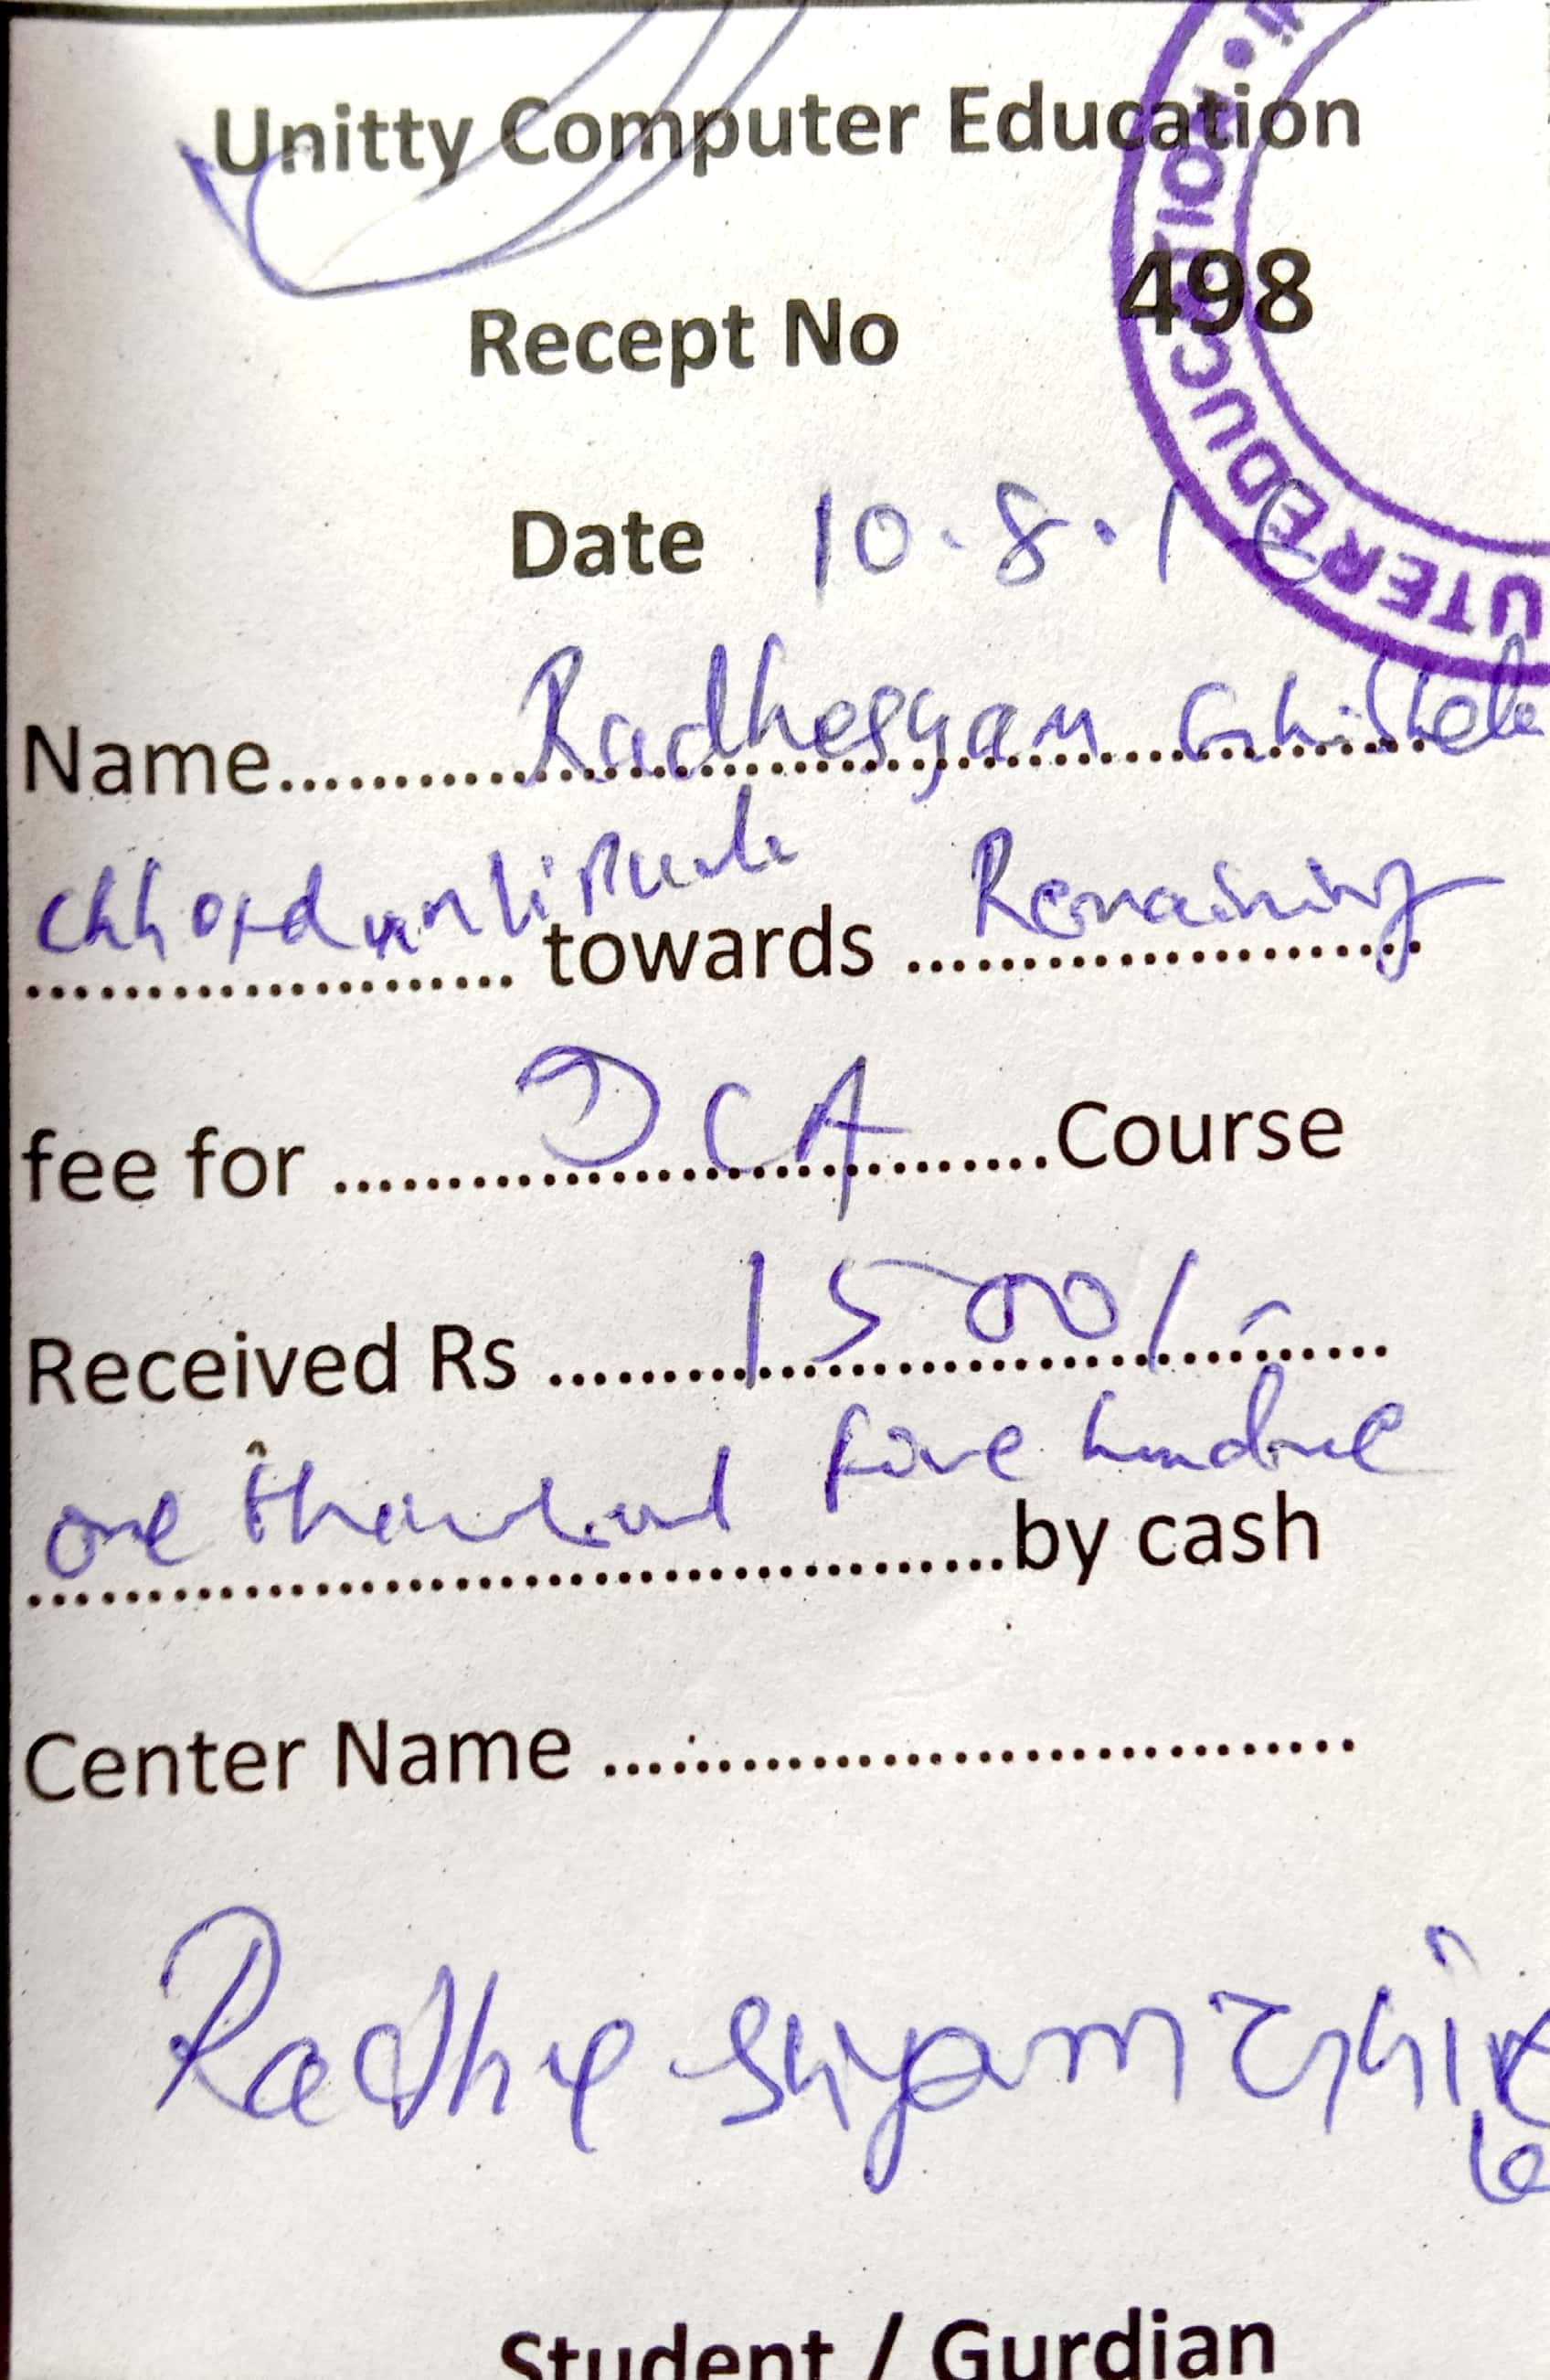 Unitty Computer Education
Recept No 498
Date 10.8.1
Name.......... Radhesyam
.......... towards Remaining
fee for .......... DCA ..........Course
Received Rs .......... 1500/-
one thousand five hundred
..........by cash
Center Name ..........
Radhe Shyam
Student / Gurdian
UTER EDUCATION